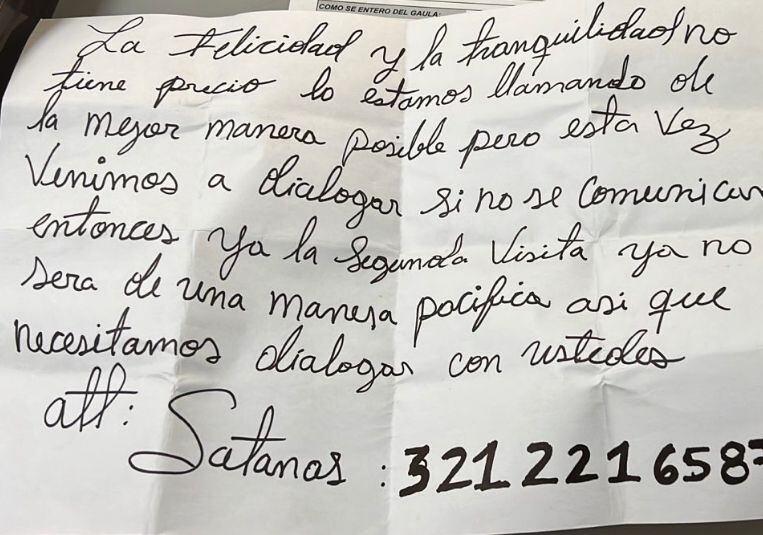 COMO SE ENTERO DEL GAULA:
La Felicidad y la tranquilidad no
tiene precio lo estamos llamando de
la mejor manera posible pero esta vez
Venimos a dialogar si no se comunican
entonces ya la segunda Visita ya no
sera de una manera pacifica asi que
necesitamos dialogar con ustedes
att:
Satanas : 321 221 658